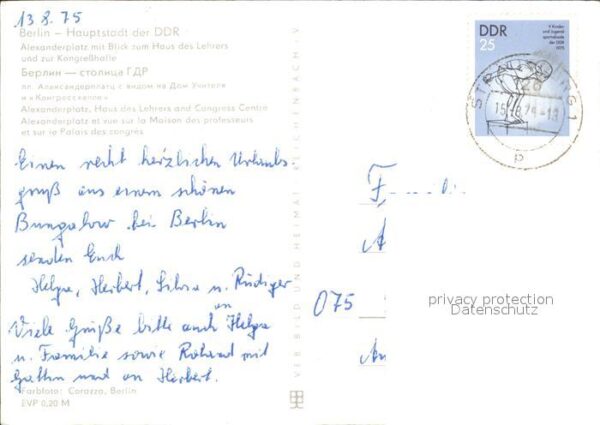 13.8.75
Berlin – Hauptstadt der DDR
Alexanderplatz mit Blick zum Haus des Lehrers
und zur Kongreßhalle
Берлин — столица ГДР
пл. Александерплатц с видом на Дом Учителя
и «Конгрессхалле»
Alexanderplatz, Haus des Lehrers and Congress Centre
Alexanderplatz et vue sur la Maison des professeurs
et sur le Palais des congrès
Einen recht herzlichen Urlaubs-
gruß aus einem schönen
Bungalow bei Berlin
senden Euch
Helga, Herbert, Silvia u. Rüdiger
an
Viele Grüße bitte auch Helga
u. Familie sowie Roland mit
Gattin und an Herbert.
Farbfoto: Corazza, Berlin
EVP 0,20 M
VEB BILD UND HEIMAT REICHENBACH i. V
DDR
25
V. Kinder-
und Jugend
spartakiade
der DDR
1975
STRAUSBERG 1
075
privacy protection
Datenschutz